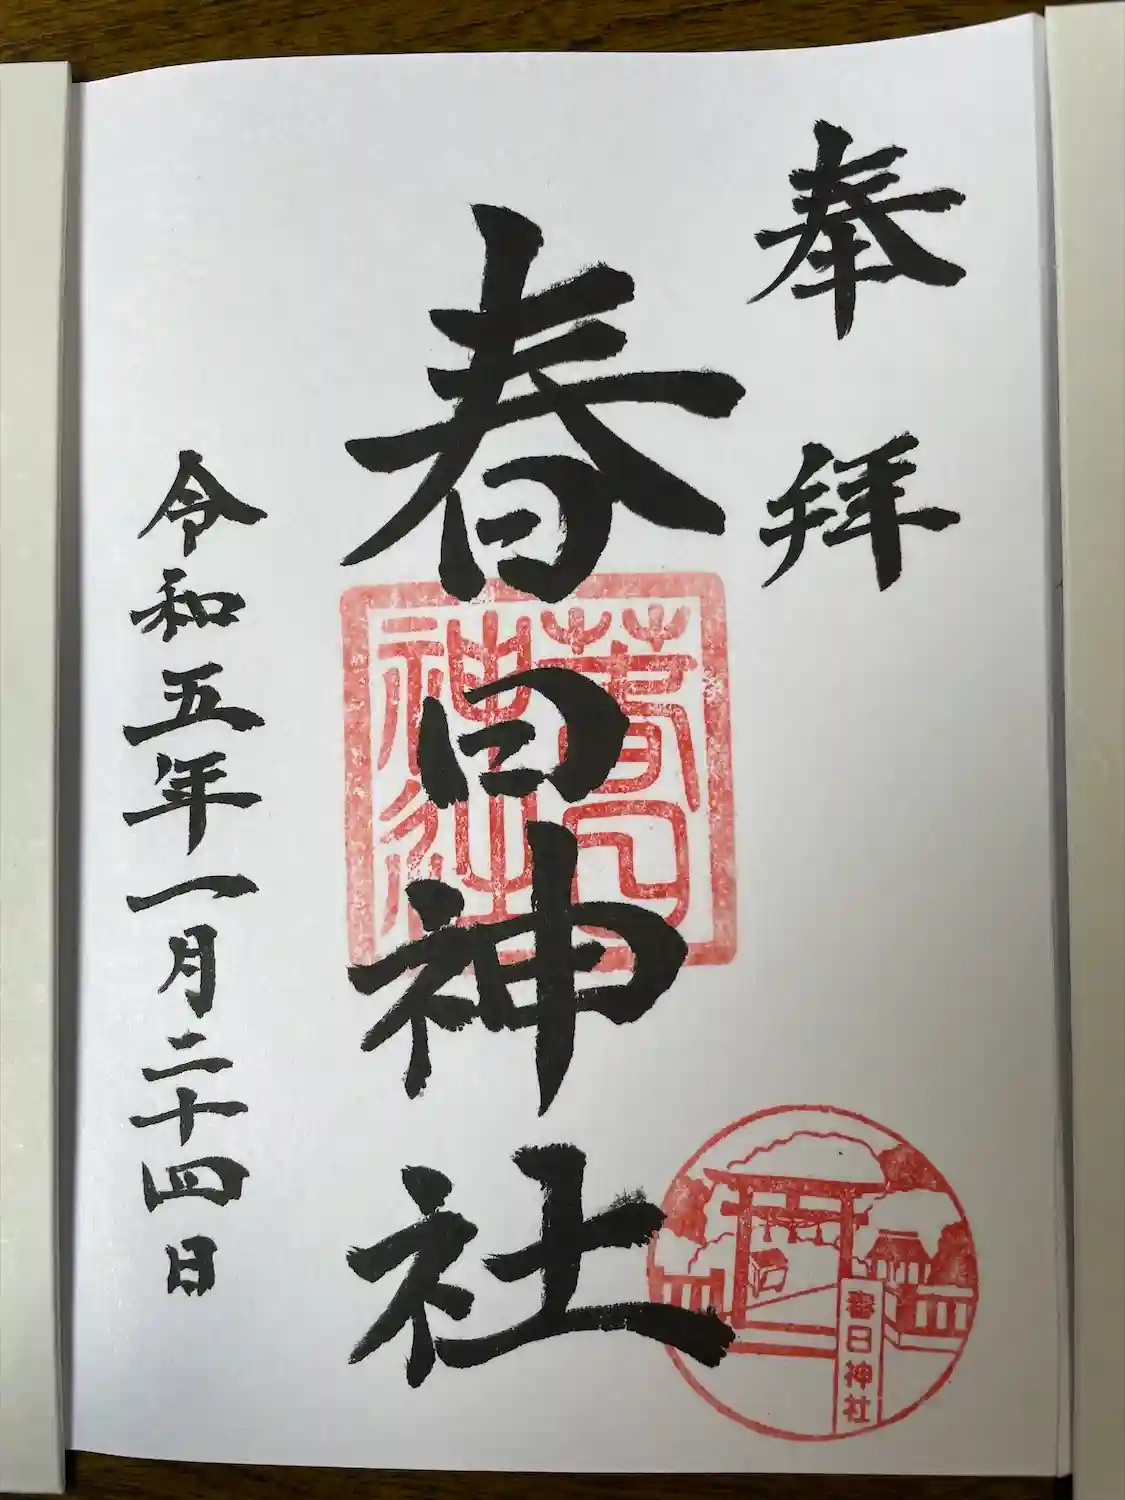 奉拝
春日神社
春日神社
令和五年一月二十四日
春日神社